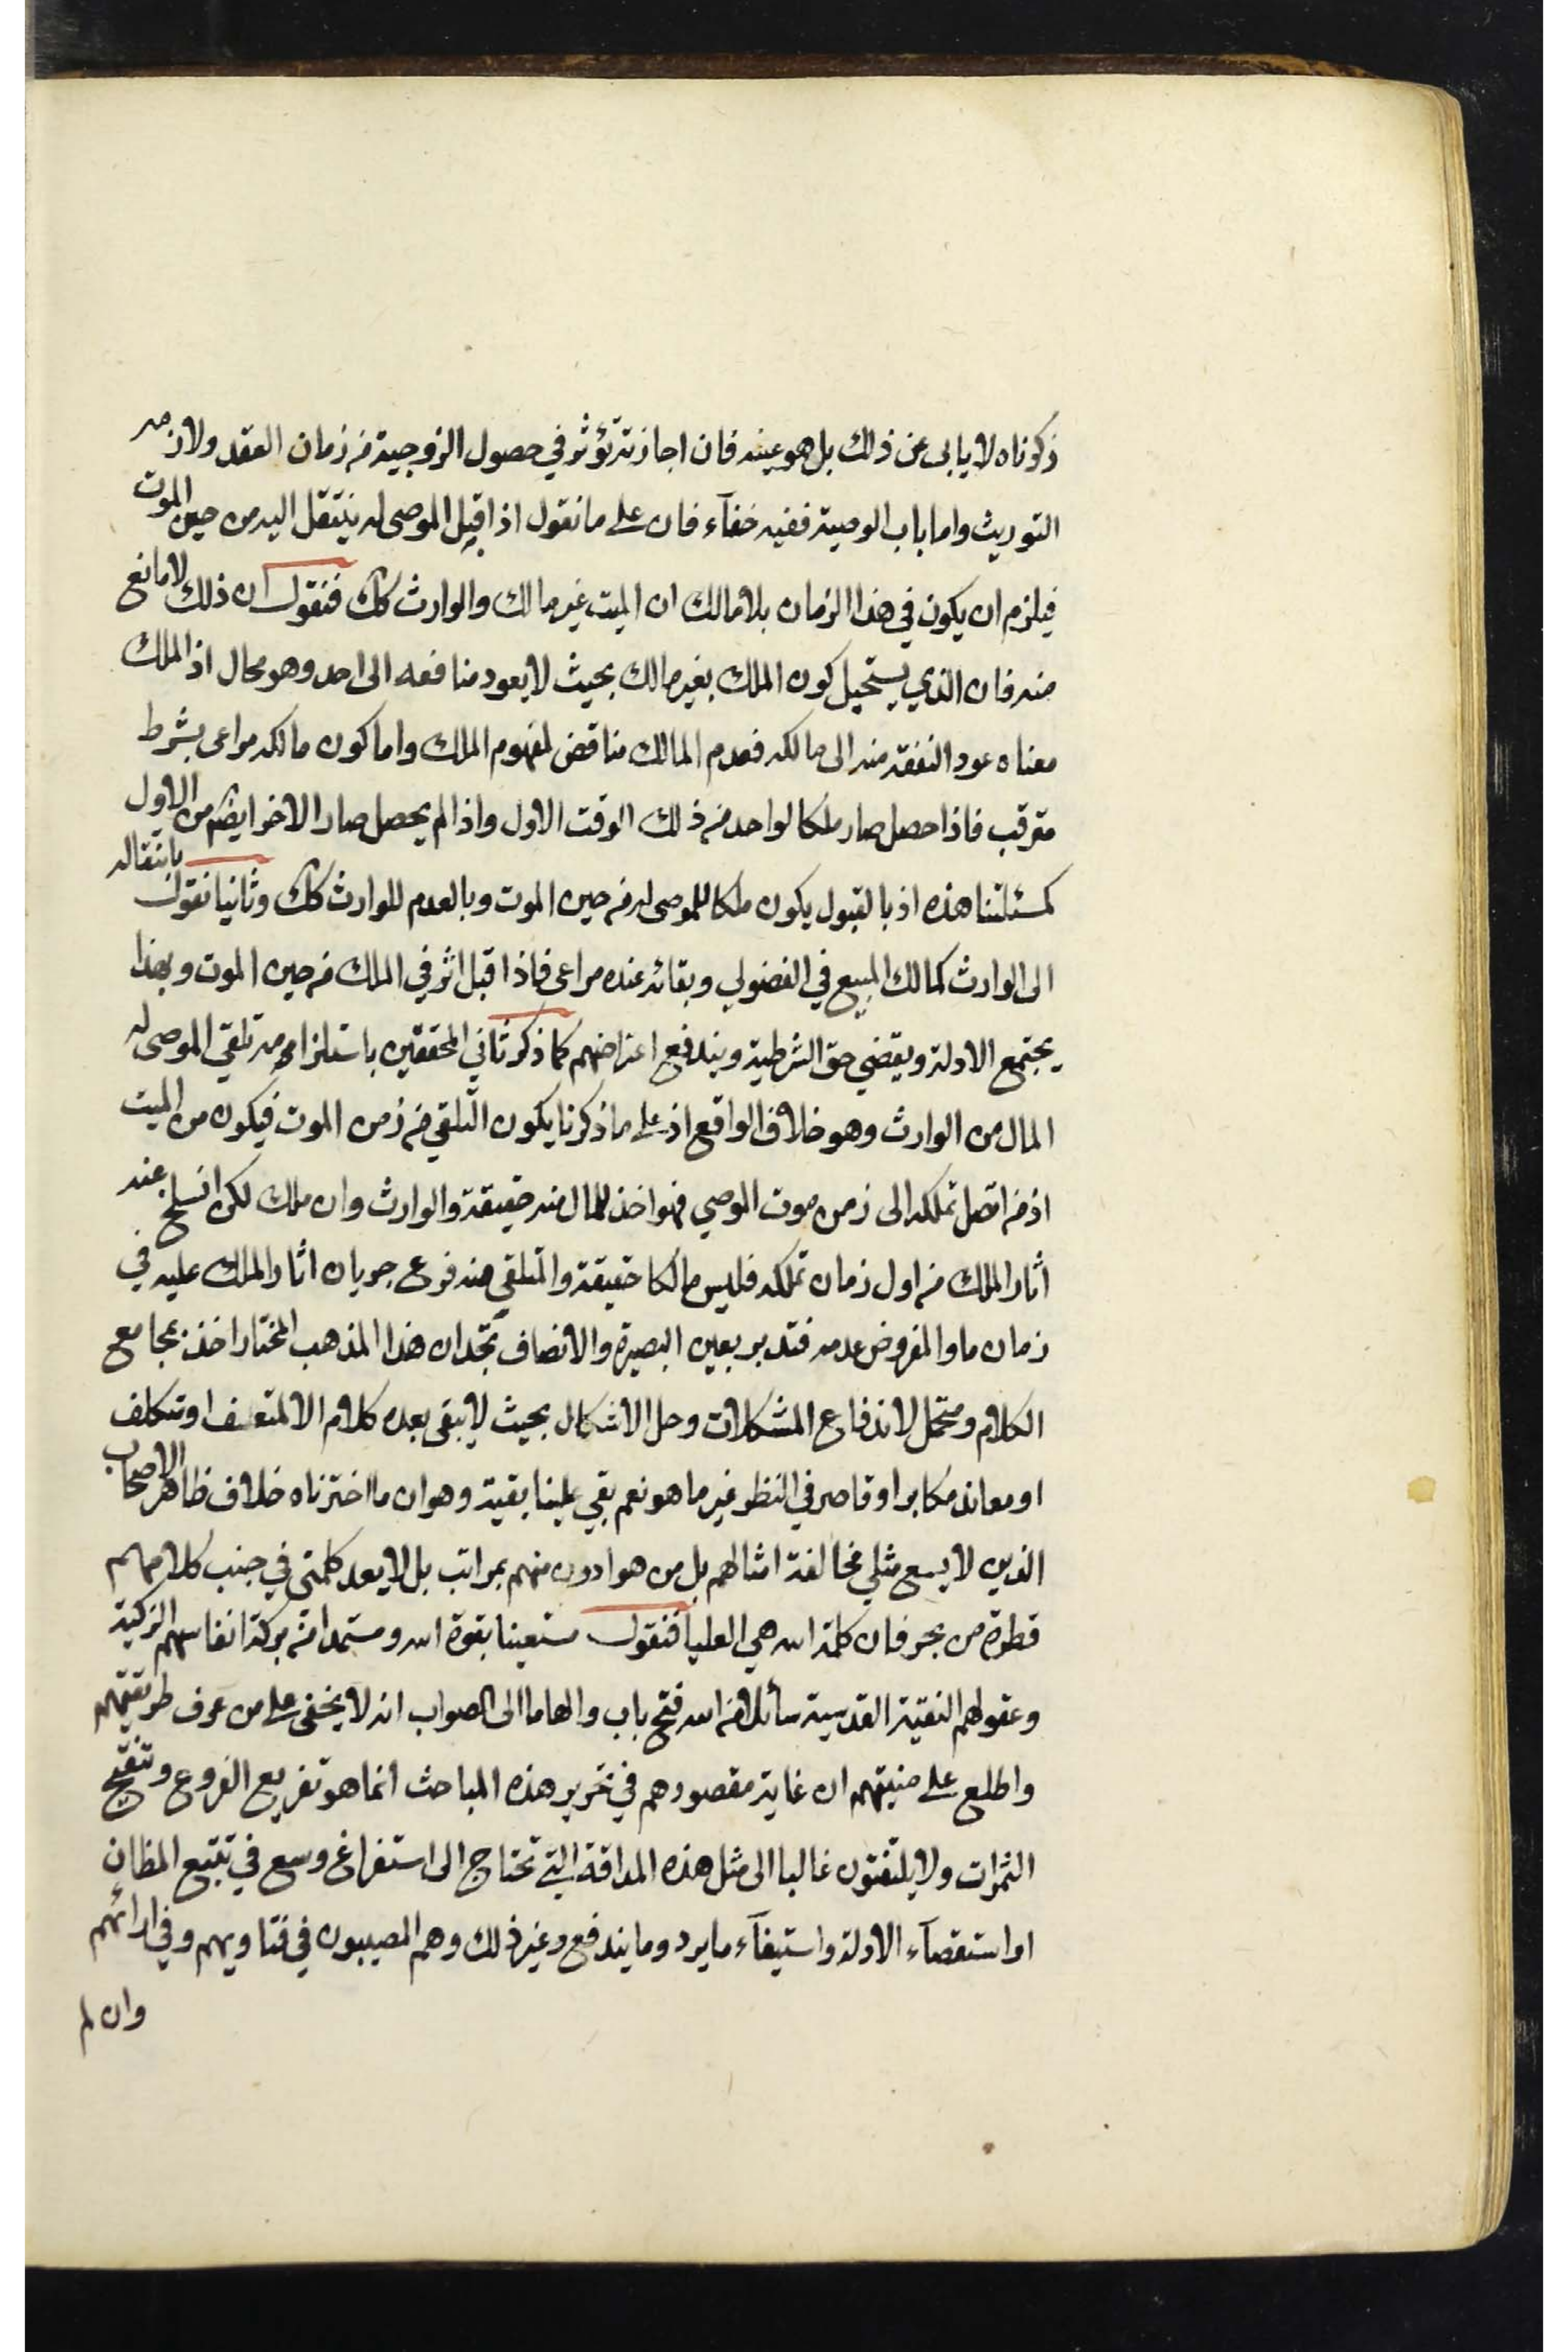 ذكرناه لا يابى عن ذلك بل هو عينه فان اجازته تؤثر في حصول الزوجية من زمان العقد ولازمه
التوريث واما باب الوصية ففيه خفآء فان على ما نقول اذا قبل الموصى له ينتقل اليه من حين الموت
فيلزم ان يكون في هذا الزمان بلا مالك ان الميت غير مالك والوارث كك فنقول ان ذلك لا مانع
منه فان الذي يستحيل كون الملك بغير مالك بحيث لا يعود منافعه الى احد وهو محال اذ الملك
معناه عود النفقة منه الى مالكه فعدم المالك مناقض لمفهوم الملك واما كون مالكه مراعى بشرط
مترقب فاذا حصل صار ملكا لواحد من ذلك الوقت الاول واذا لم يحصل صار الاخر ايضا من الاول
كمسئلتنا هذه اذ بالقبول يكون ملكا للموصى له من حين الموت وبالعدم للوارث كك وثانيا نقول بانتقاله
الى الوارث كمالك المبيع في الفضولي وبقائه عنده مراعى فاذا قبل اثر في الملك من حين الموت وبهذا
يجتمع الادلة ويقضي حق الشرطية ويندفع اعتراضهم كما ذكر ثاني المحققين باستلزامه تلقي الموصى له
المال من الوارث وهو خلاف الواقع اذ على ما ذكرنا يكون التلقي من زمن الموت فيكون من الميت
اذ من اتصل تملكه الى زمن موت الموصي فهو اخذ للمال منه حقيقة والوارث وان ملك لكن انسلخ عنه
اثار الملك من اول زمان تملكه فليس مالكا حقيقة والتلقي منه فرع جريان اثار الملك عليه في
زمان ما والمفروض عدمه فتدبر بعين البصيرة والانصاف تجد ان هذا المذهب المختار اخذ بمجامع
الكلام ومتحمل لاندفاع المشكلات وحل الاشكال بحيث لا يبقى بعده كلام الا لمتعسف او متكلف
او معاند مكابر او قاصر في النظر غير ماهر نعم بقي علينا بقية وهو ان ما اخترناه خلاف ظاهر الاصحاب
الذين لا يسع مثلي مخالفة امثالهم بل من هو ادون منهم بمراتب بل لا يعد كلمتي في جنب كلامهم
قطرة من بحر فان كلمة الله هي العليا فنقول مستعينا بقوة الله ومستمدا من بركة انفاسهم الزكية
وعقولهم النقية القدسية سائلا من الله فتح باب والهاما الى الصواب انه لا يخفى على من عرف طريقتهم
واطلع على منيتهم ان غاية مقصودهم في تحرير هذه المباحث انما هو تفريع الفروع وتنقيح
الثمرات ولا يلتفتون غالبا الى مثل هذه المداقة التي تحتاج الى استفراغ وسع في تتبع المظان
او استقصآء الادلة واستيفآء ما يرد وما يندفع وغير ذلك وهم المصيبون في فتاويهم وفي ارائهم
وان لم